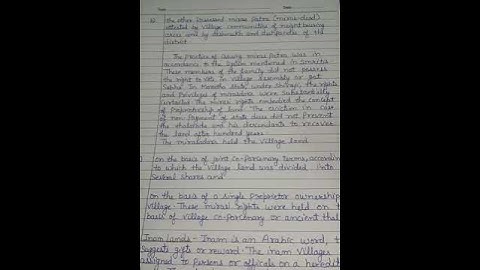 b) the other concerned miras patra (miras-deed)
attested by village communities of neighbouring
areas and by desmukh and deshpandes of the
district
The practice of issuing miras patra was in
accordance to the system mentioned in Smritis
These members of the family did not possess
the right to sit in village assembly or got
Sabha. In Maratha State, under Shivaji, the rights
and privileges of mirasdars were substantially
protected. The miras rights embodied the concept
of Proprietorship of land. The eviction in case
of non payment of state dues did not prevent
the thalakde and his descendants to recover
the land after hundred years
The mirasdars held the village land
on the basis of joint co-parcenary terms, according
to which the village land was divided into
several shares and
on the basis of a single proprietor ownership
village. These miras rights were held on t
basis of village co-parcenary or ancient that
Inam lands - Inam is an Arabic word, t
suggests gift or reward. The inam villages
assigned to persons or officials on a heredit